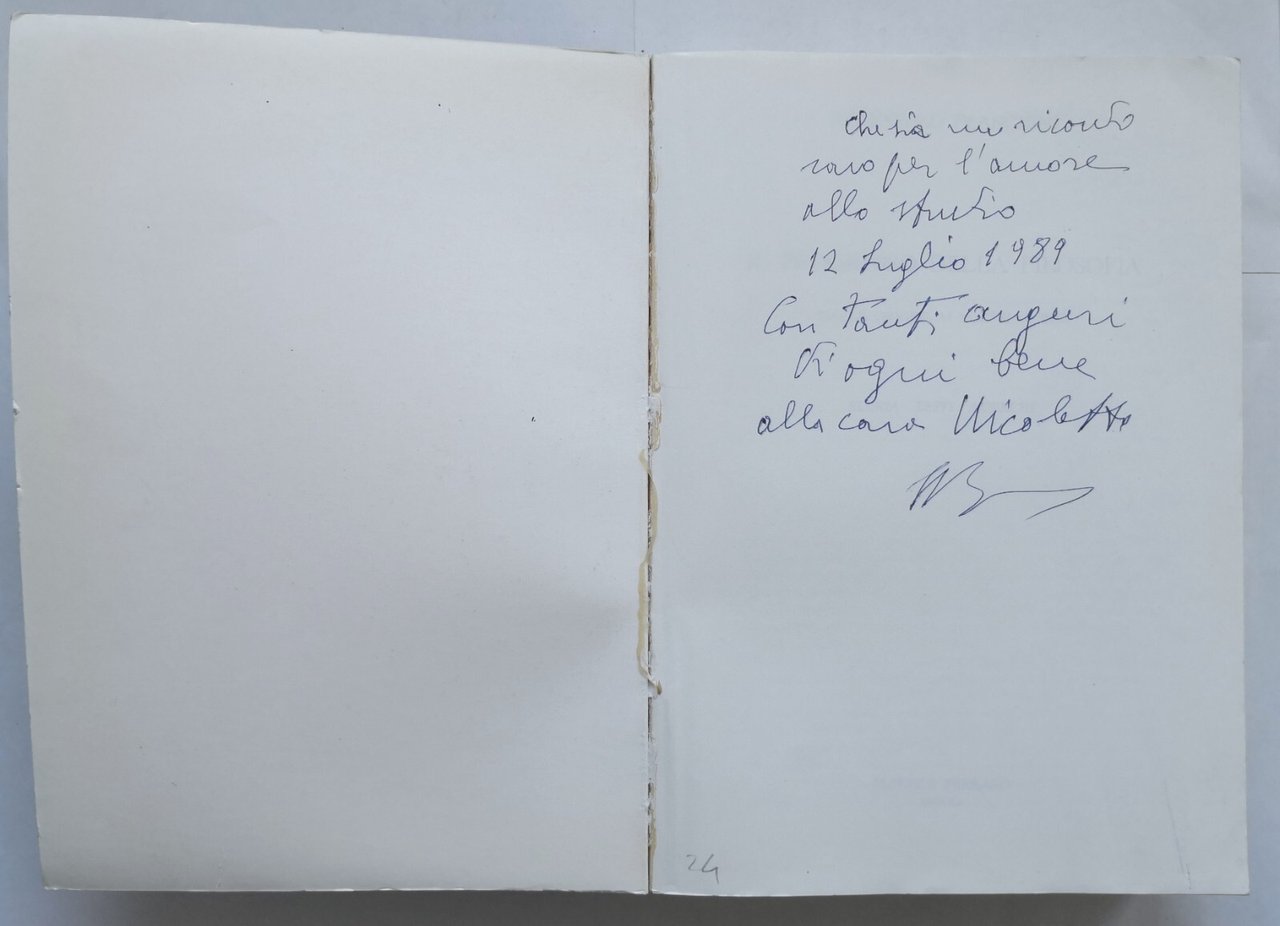 che sia un ricordo
caro per l'amore
allo studio
12 Luglio 1989
Con tanti auguri
di ogni bene
alla cara Nicoletta
24